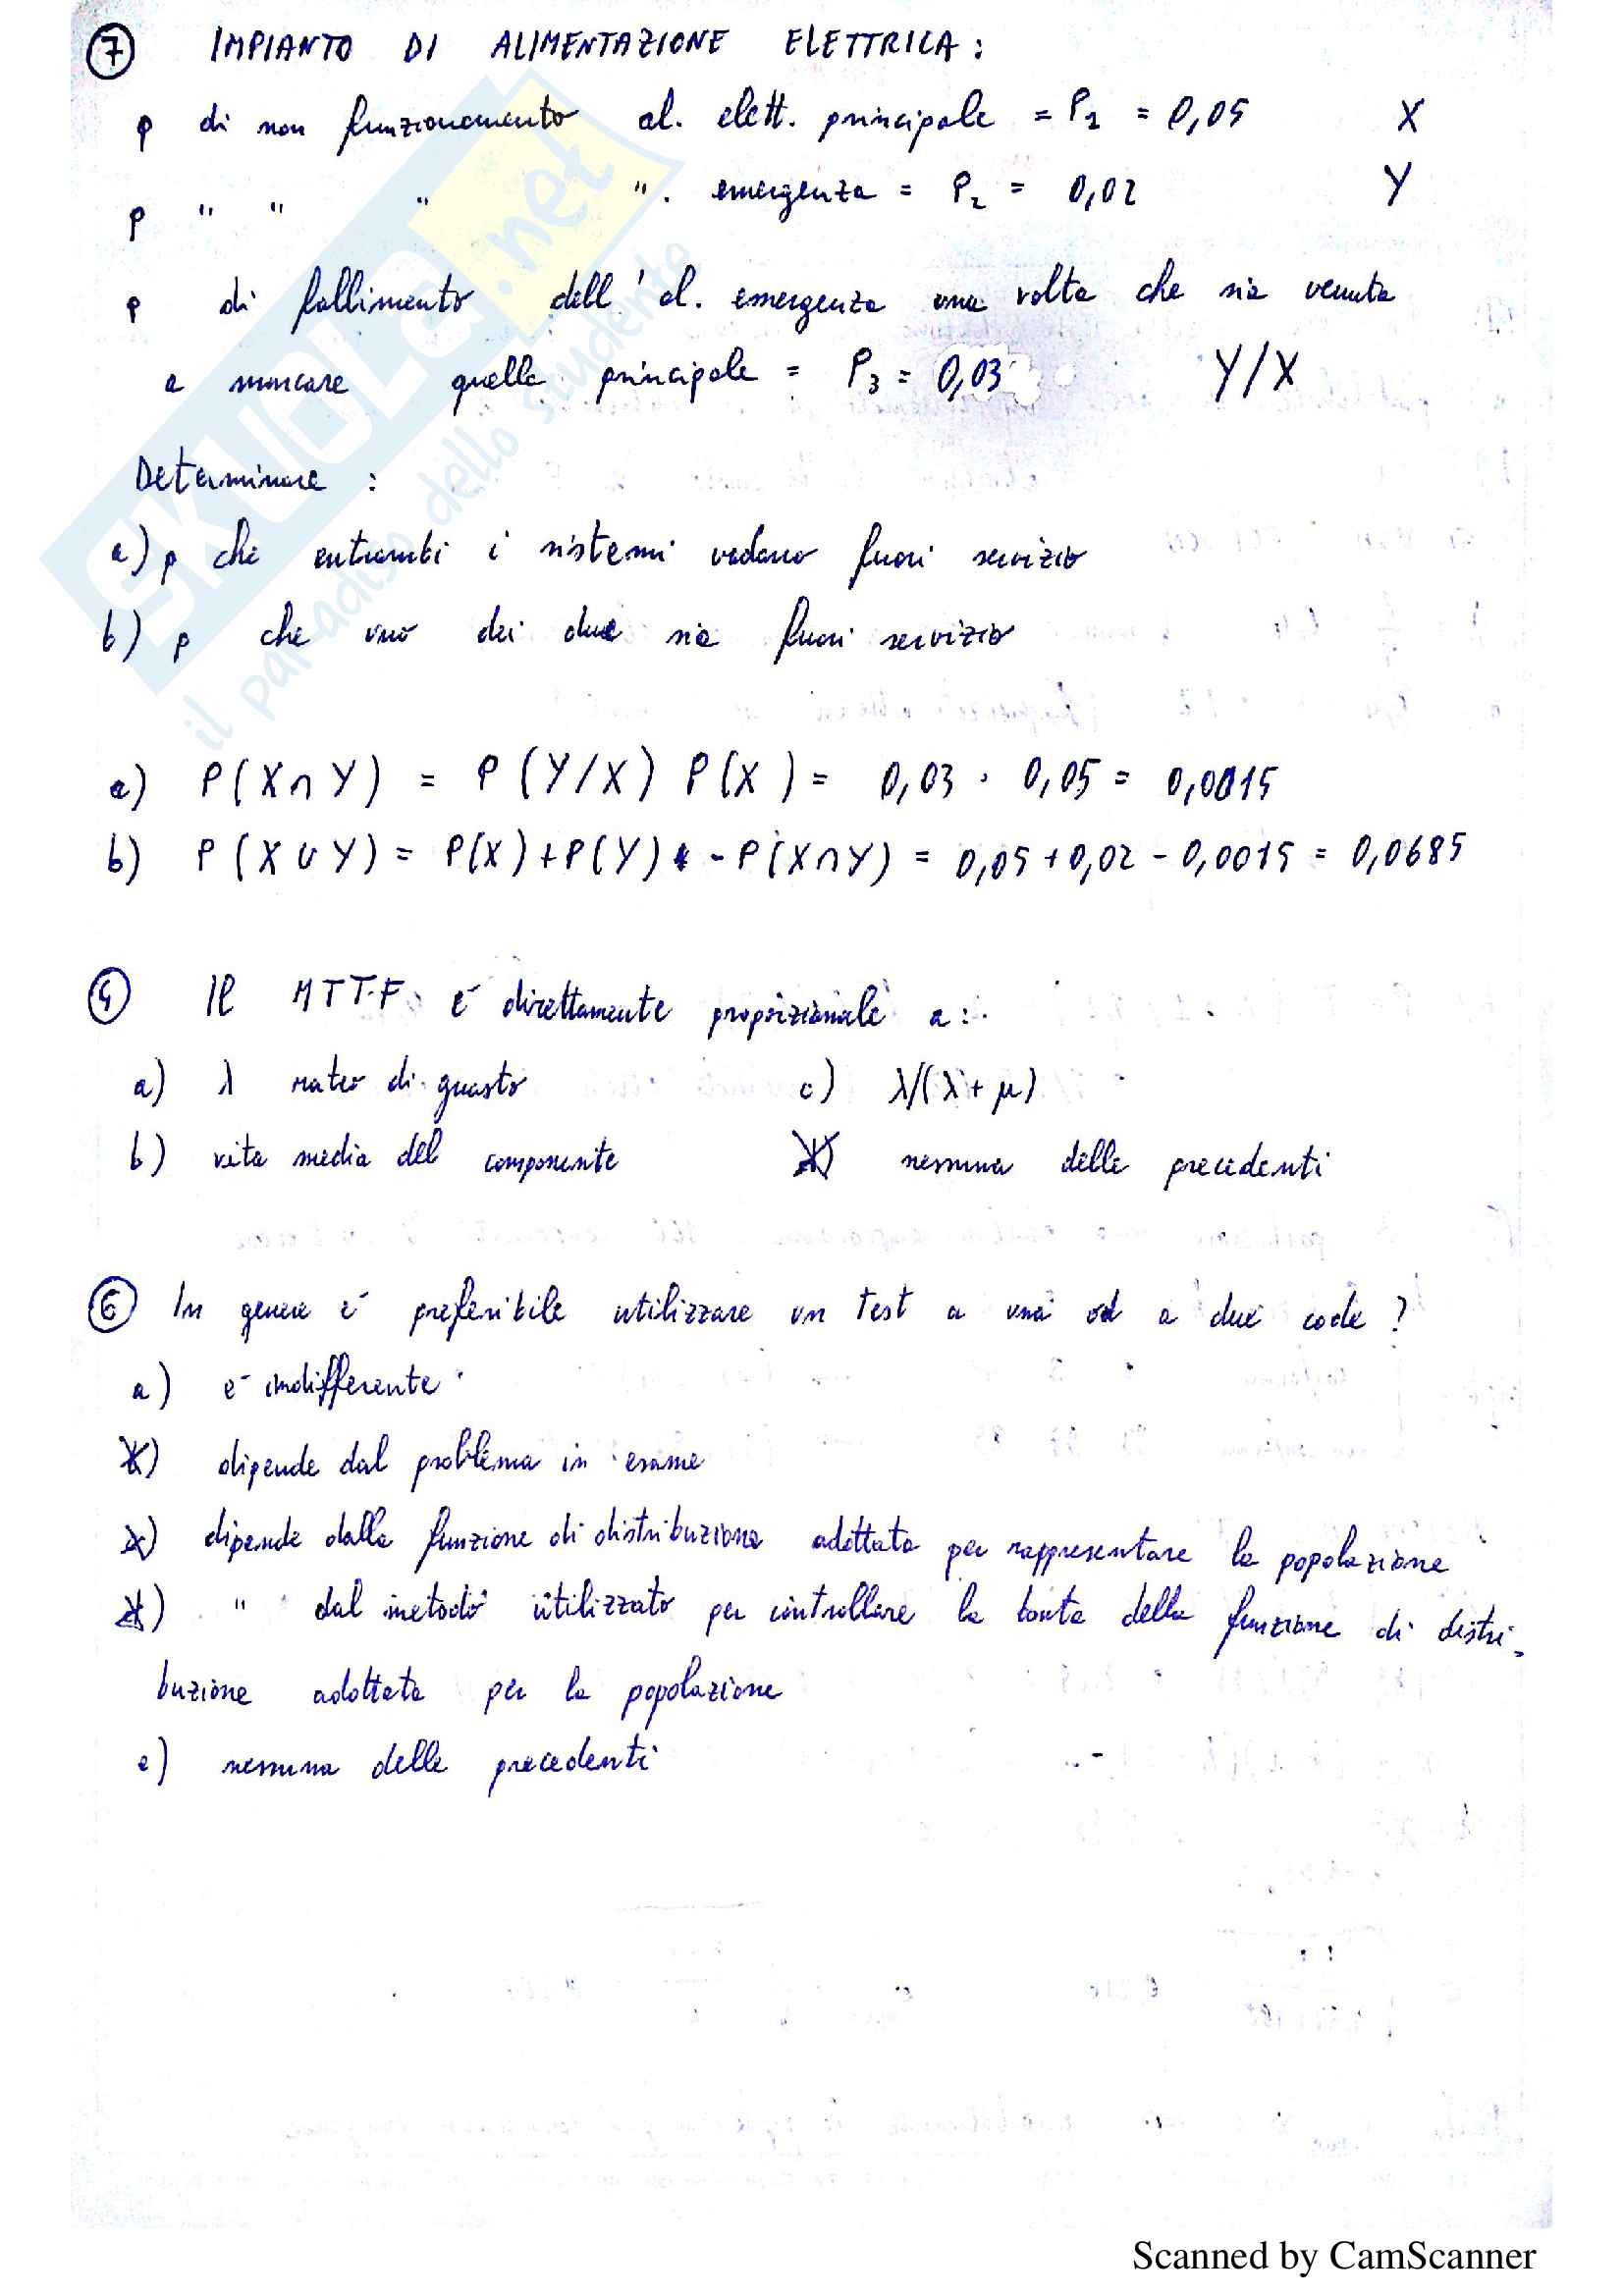 7 IMPIANTO DI ALIMENTAZIONE ELETTRICA:
p di non funzionamento al. elett. principale = P1 = 0,05 X
p " " " ". emergenza = P2 = 0,02 Y
p di fallimento dell'al. emergenza una volta che sia venuta
a mancare quella principale = P3 = 0,03 Y/X
Determinare :
a) p che entrambi i sistemi vadano fuori servizio
b) p che uno dei due sia fuori servizio
a) P(X∩Y) = P(Y/X) P(X) = 0,03 · 0,05 = 0,0015
b) P(X∪Y) = P(X)+P(Y) - P(X∩Y) = 0,05+0,02 - 0,0015 = 0,0685
Il MTTF è direttamente proporzionale a:
a) λ rateo di guasto c) λ/(λ+μ)
b) vita media del componente d) nessuna delle precedenti
6 In genere è preferibile utilizzare un test a una od a due code?
a) è indifferente
b) dipende dal problema in esame
c) dipende dalla funzione di distribuzione adottata per rappresentare la popolazione
d) " dal metodo utilizzato per controllare la bontà della funzione di distri-
buzione adottata per la popolazione
e) nessuna delle precedenti
SKUOLA.net
il paradiso dello studente
Scanned by CamScanner